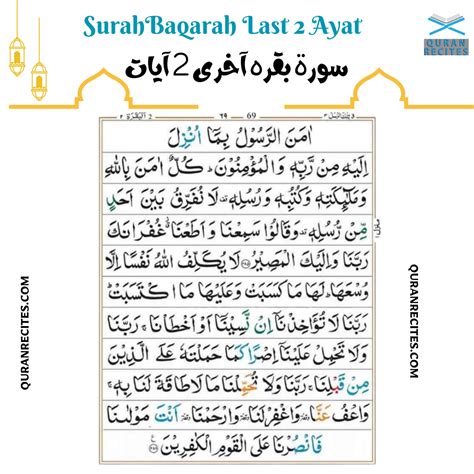 SurahBaqarah Last 2 Ayat
QURAN
RECITES
سورة بقره آخری 2 آیات
البقرة ٢
٦٩
69
اٰمَنَ الرَّسُوْلُ بِمَاۤ اُنْزِلَ
اِلَيْهِ مِنْ رَّبِّهٖ وَالْمُؤْمِنُوْنَ ؕ كُلٌّ اٰمَنَ بِاللّٰهِ
وَمَلٰٓئِكَتِهٖ وَكُتُبِهٖ وَرُسُلِهٖ ۟ لَا نُفَرِّقُ بَيْنَ اَحَدٍ
مِّنْ رُّسُلِهٖ ۟ وَقَالُوْا سَمِعْنَا وَاَطَعْنَا ٭ۗ غُفْرَانَكَ
رَبَّنَا وَاِلَيْكَ الْمَصِيْرُ ﴿۲۸۵﴾ لَا يُكَلِّفُ اللّٰهُ نَفْسًا اِلَّا
وُسْعَهَا ؕ لَهَا مَا كَسَبَتْ وَعَلَيْهَا مَا اكْتَسَبَتْ ؕ
رَبَّنَا لَا تُؤَاخِذْنَاۤ اِنْ نَّسِيْنَاۤ اَوْ اَخْطَاْنَا ۚ رَبَّنَا
وَلَا تَحْمِلْ عَلَيْنَاۤ اِصْرًا كَمَا حَمَلْتَهٗ عَلَى الَّذِيْنَ
مِنْ قَبْلِنَا ۚ رَبَّنَا وَلَا تُحَمِّلْنَا مَا لَا طَاقَةَ لَنَا بِهٖ ۚ
وَاعْفُ عَنَّا ۥ وَاغْفِرْ لَنَا ۥ وَارْحَمْنَا ۥ اَنْتَ مَوْلٰىنَا
فَانْصُرْنَا عَلَى الْقَوْمِ الْكٰفِرِيْنَ ﴿۲۸۶﴾
QURANRECITES.COM
QURANRECITES.COM